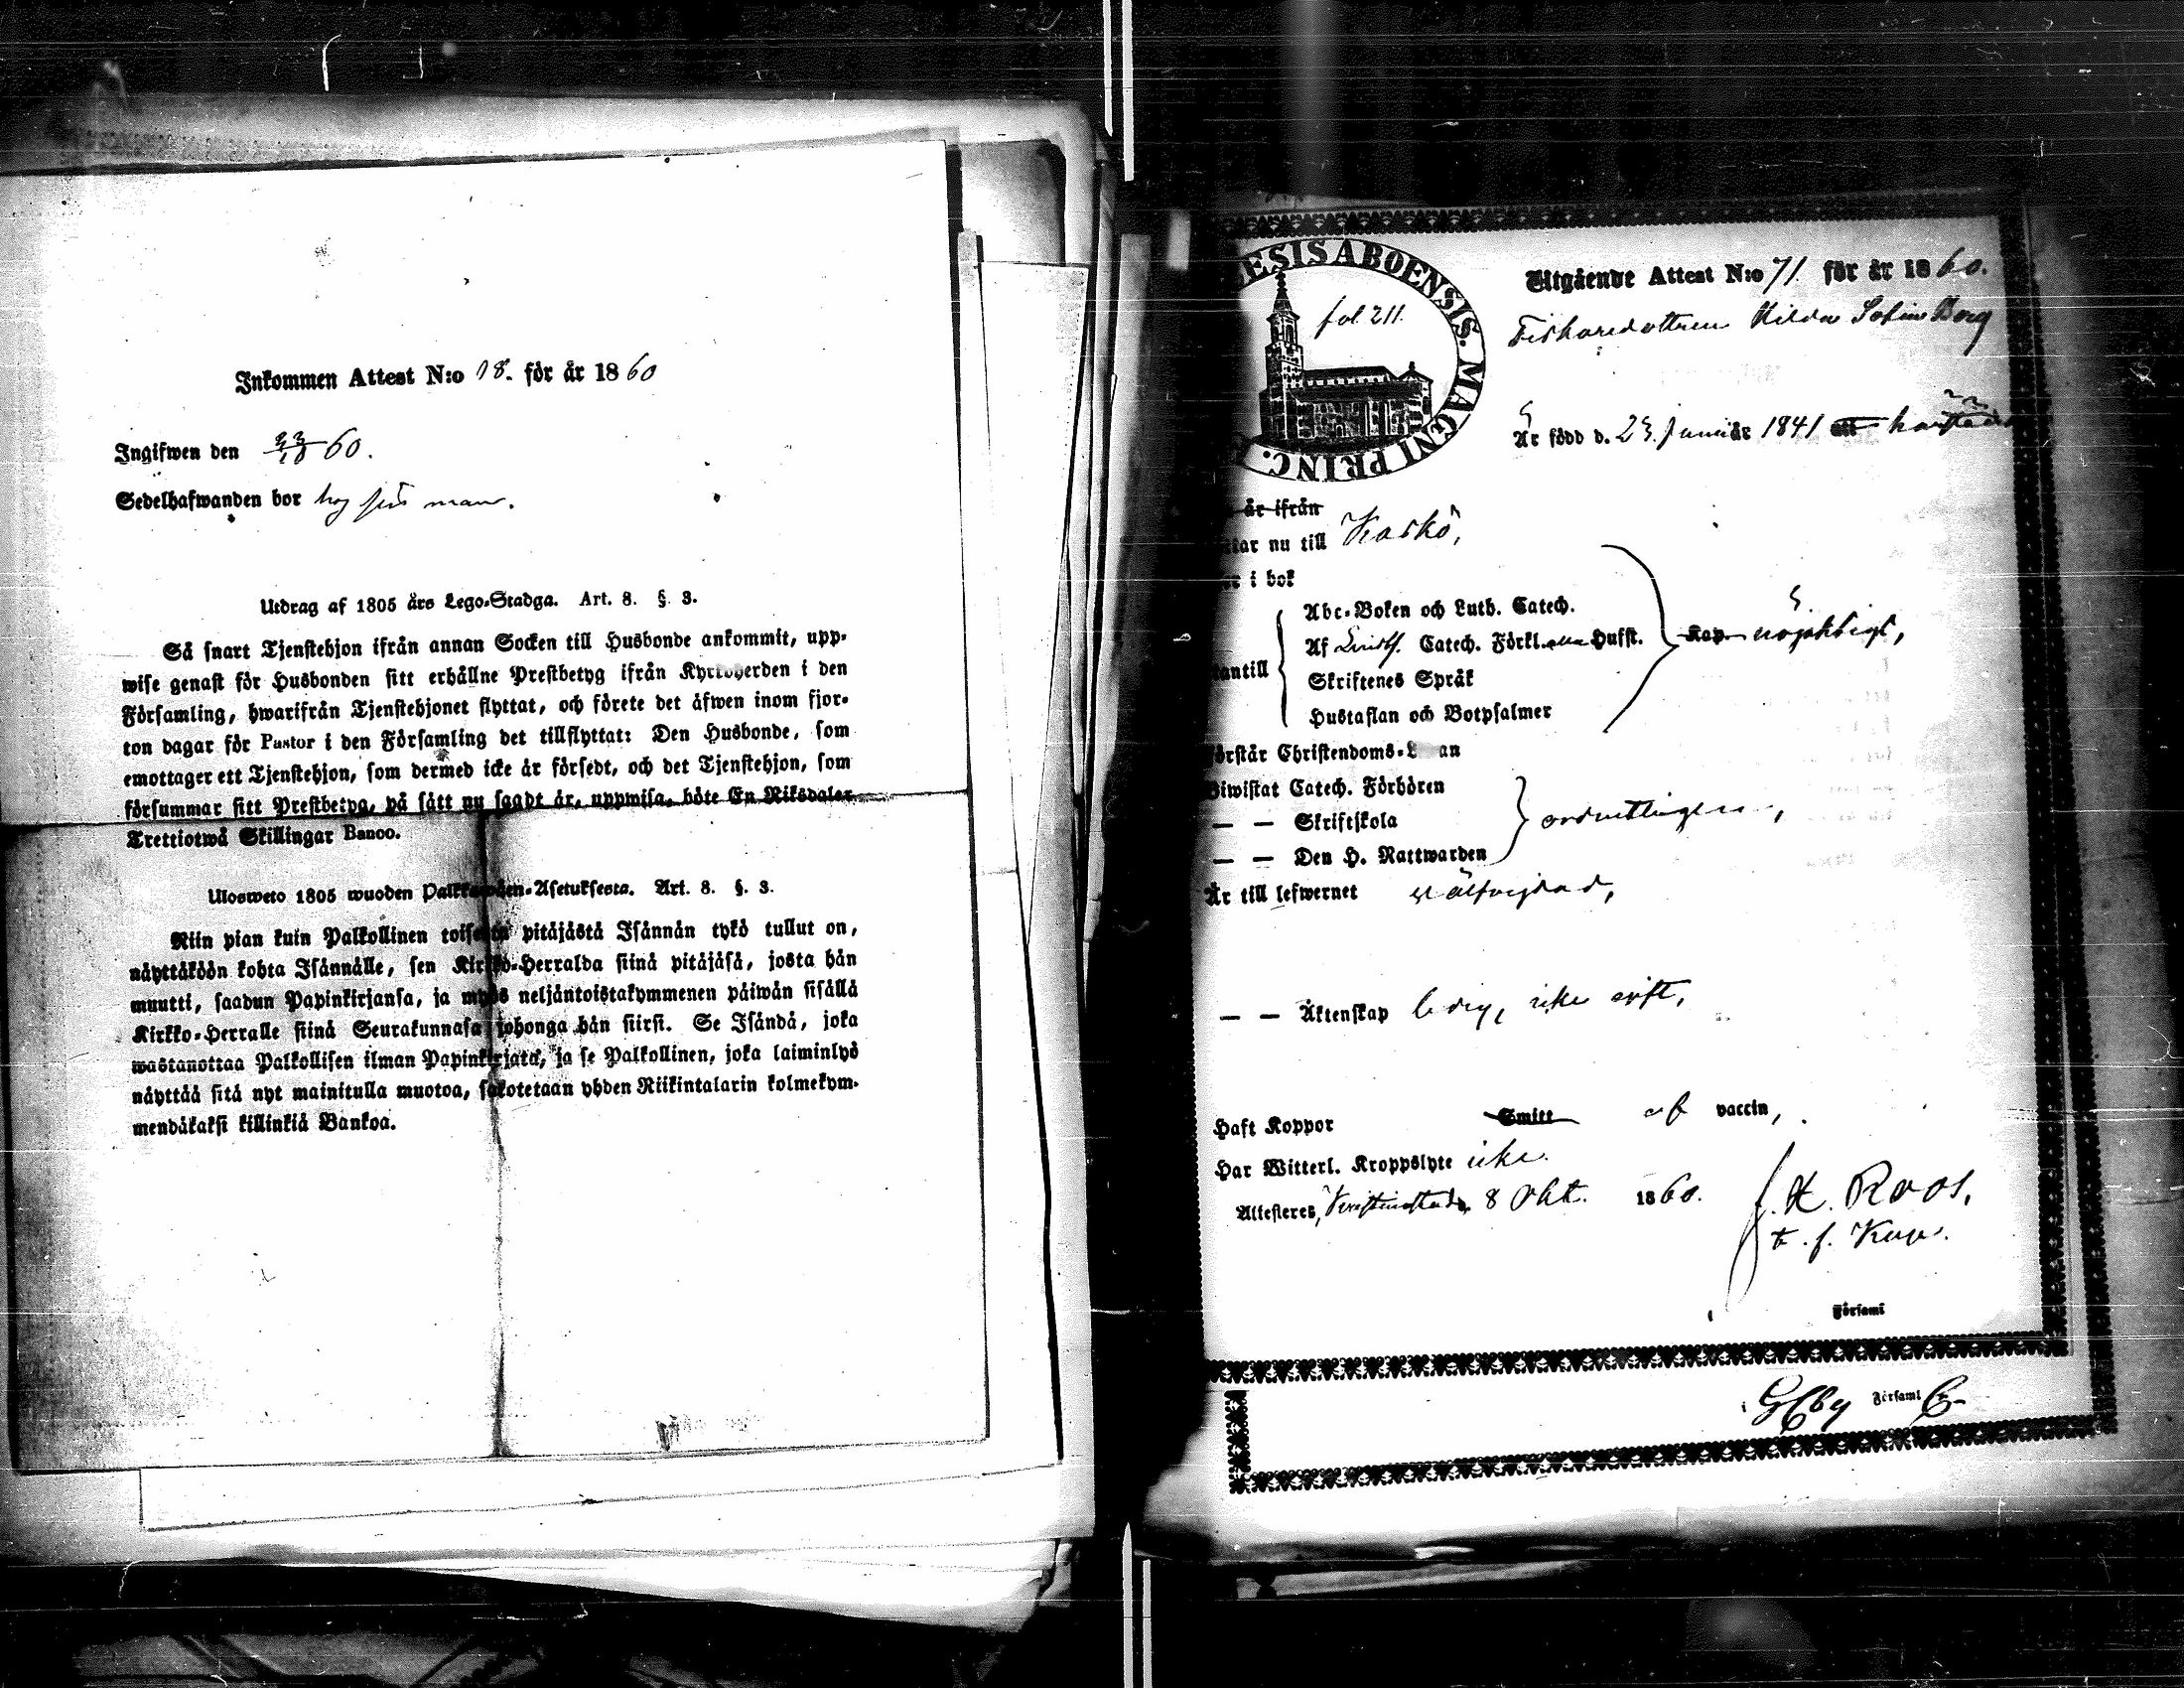 Inkommen Attest N:o 18. för år 1860
Ingifwen den 23/10 60.
Sedelhafwanden bor hos sin man.
Utdrag af 1805 års Lego-Stadga. Art. 8. §. 3.
Så snart Tjenstehjon ifrån annan Socken till Husbonde ankommit, upp-
wise genast för Husbonden sitt erhållne Prestbetyg ifrån Kyrkoherden i den
Församling, hwarifrån Tjenstehjonet flyttat, och förete det äfwen inom fjor-
ton dagar för Pastor i den Församling det tillflyttat: Den Husbonde, som
emottager ett Tjenstehjon, som dermed icke är försedt, och det Tjenstehjon, som
försummar sitt Prestbetyg, på sätt nu sagdt är, uppwisa, böte En Riksdaler
Trettiotwå Skillingar Banco.
Ulosweto 1805 wuoden Palkkawäen-Asetuksesta. Art. 8. §. 3.
Niin pian kuin Palkollinen toisesta pitäjästä Isännän tykö tullut on,
näyttäköön kohta Isännälle, sen Kirkko-Herralda siinä pitäjäsä, josta hän
muutti, saadun Papinkirjansa, ja myös neljäntoistakymmenen päiwän sisällä
Kirkko-Herralle siinä Seurakunnasa johonga hän siirsi. Se Isändä, joka
wastanottaa Palkollisen ilman Papinkirjata, ja se Palkollinen, joka laiminlyö
näyttää sitä nyt mainitulla muotoa, sakotetaan yhden Riikintalarin kolmekym-
mendäkaksi killinkiä Bankoa.
ESIS ABOENSIS. MAGNI PRINC.
fol. 211.
Utgående Attest N:o 71. för år 1860.
Fiskaredottren Hilda Sofia Borg
Är född d. 23. Juni år 1841 härstädes
är ifrån
tar nu till Kaskö,
i bok
Abc-Boken och Luth. Catech.
Af Catech. Förkl. Husst. Kap nöjaktigt,
antill
Skriftenes Språk
Hustaflan och Botpsalmer
örstår Christendoms-L an
Biwistat Catech. Förhören
— — Skriftskola ordentligen,
— — Den H. Nattwarden
Är till lefwernet wälfrejdad,
— — Äktenskap ledig, icke gift,
Haft Koppor Smitt af vaccin,
Har Witterl. Kroppslyte icke.
Attesteres, Kristinestad, 8 Okt. 1860.
J. H. Roos,
t. f. Kap.
Församl
Församl